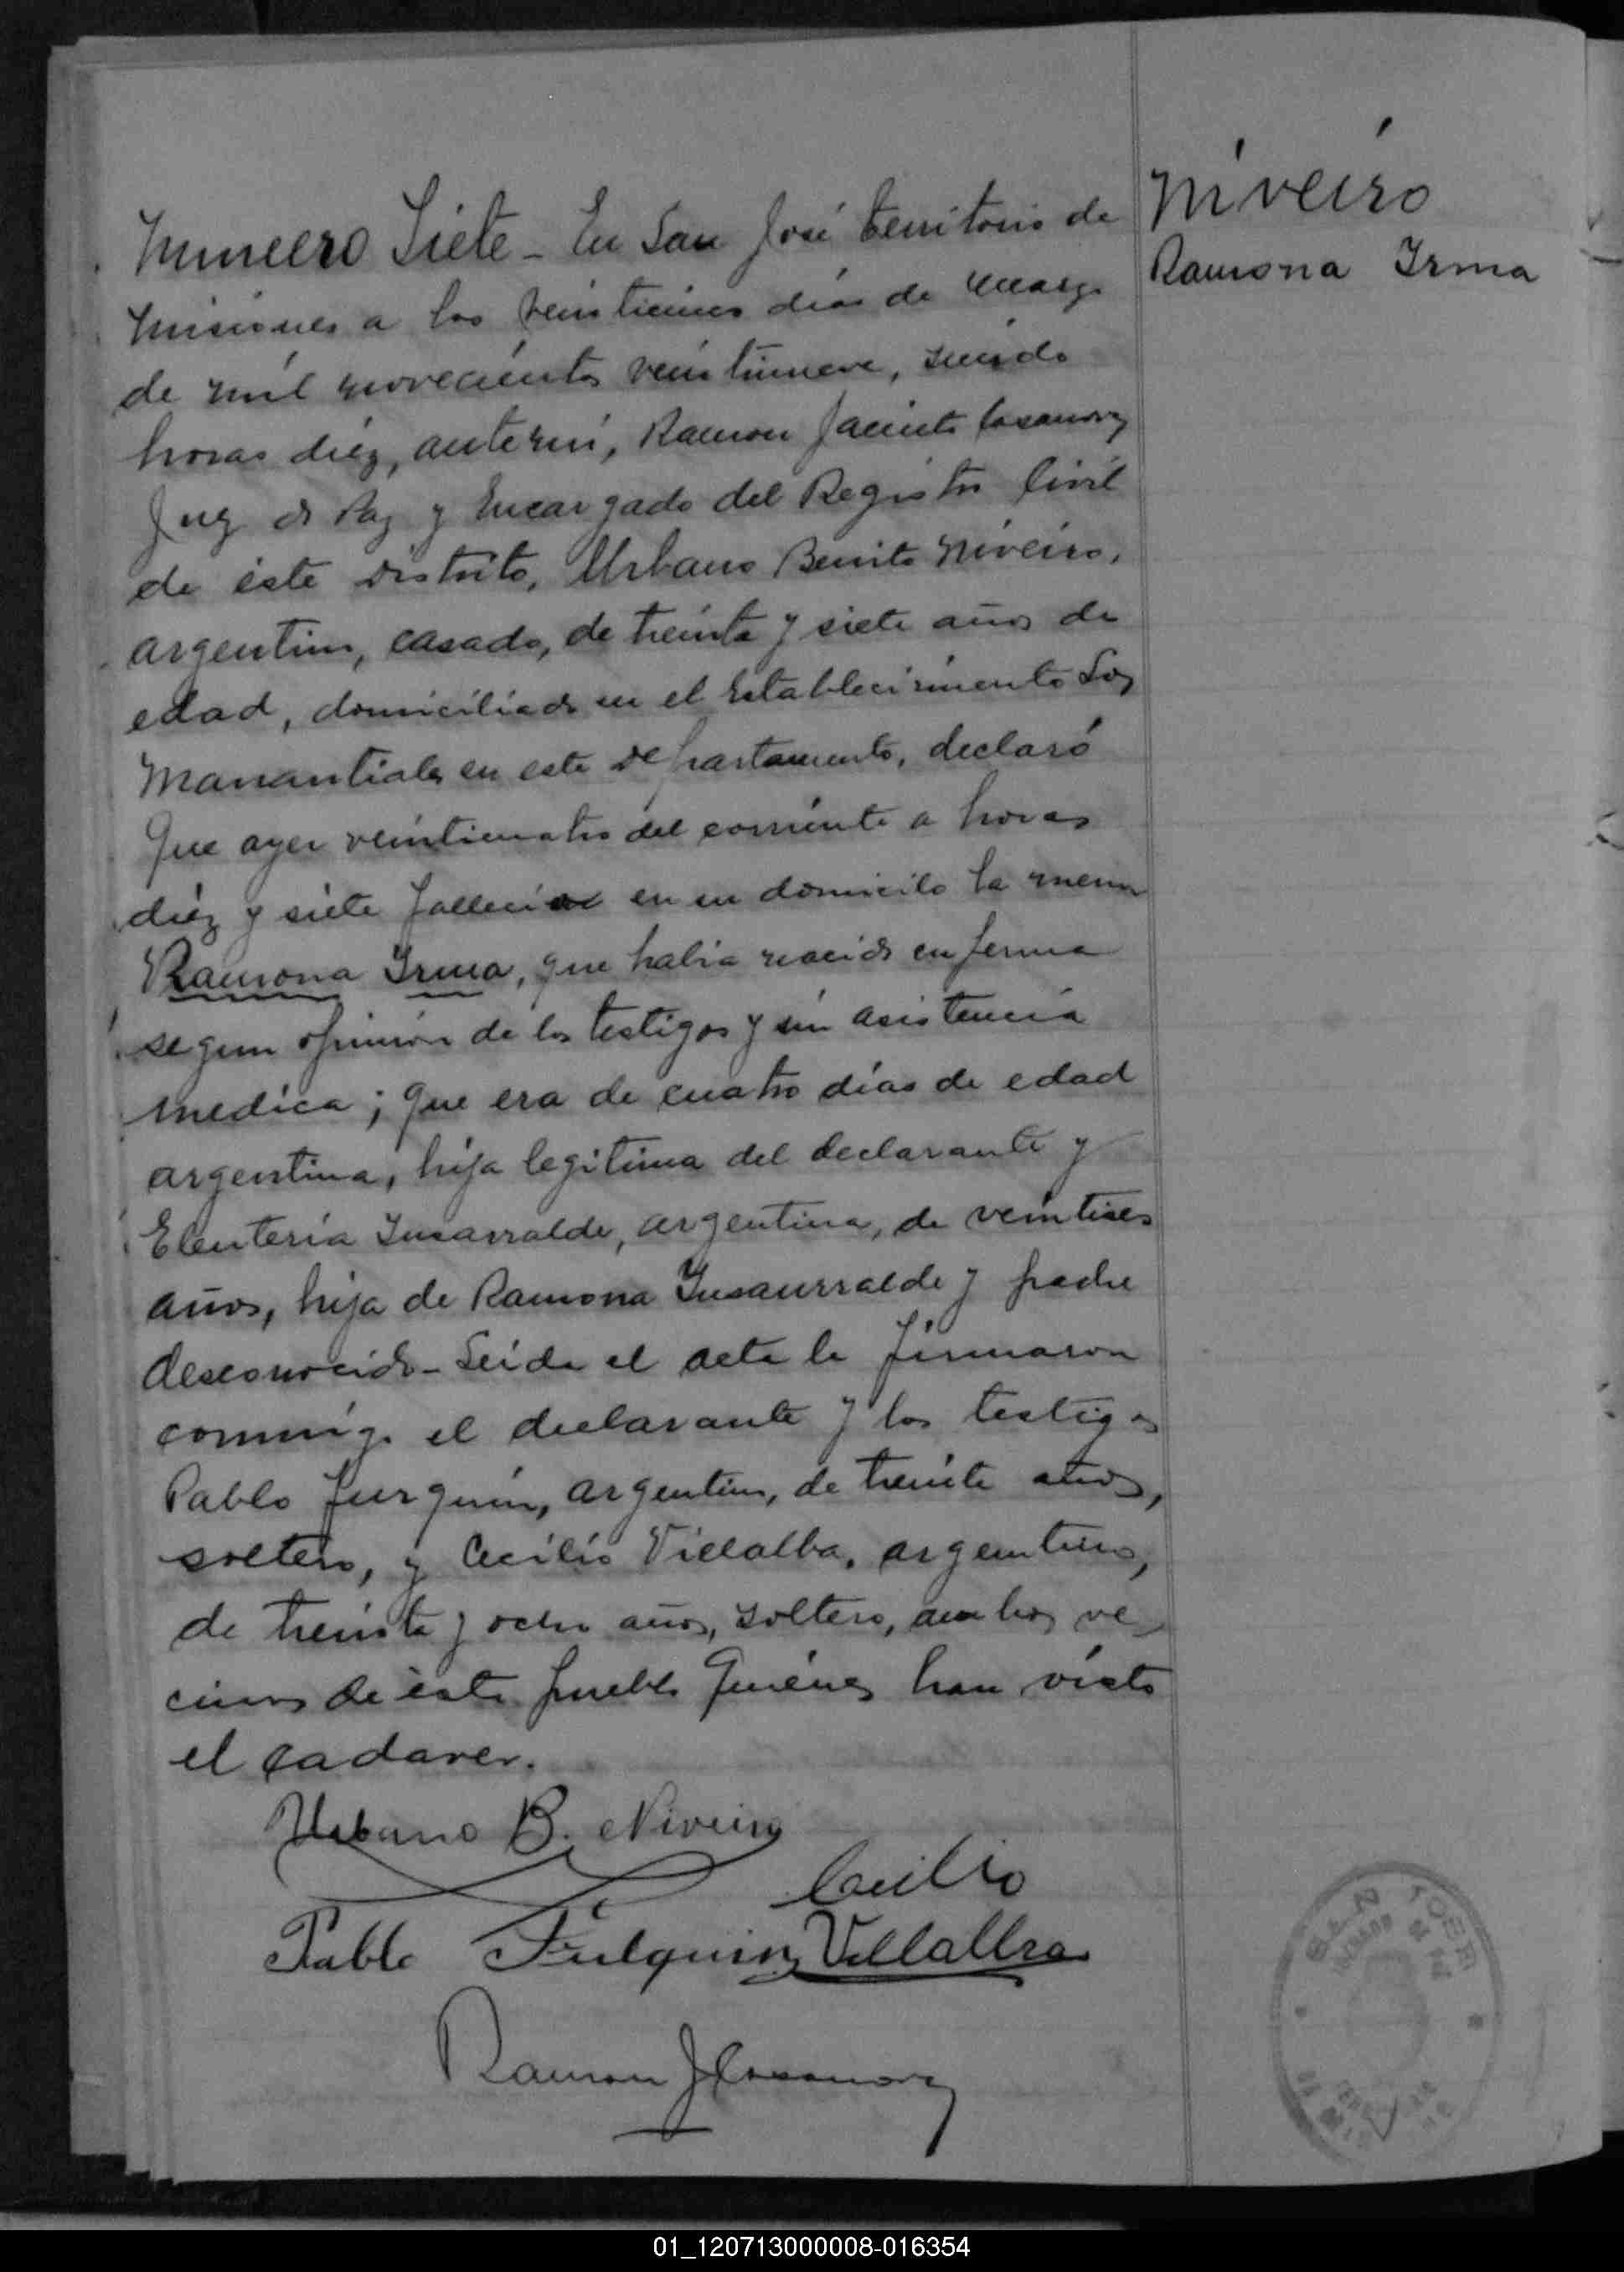 Niveiro
Ramona Irma
Numeero Siete - En San José territorio de
Misiones a los veinticinco dias de marzo
de mil novecientos veintinueve, siendo
horas diez, ante mi, Ramon Jacinto Casanova
Juez de Paz y Encargado del Registro Civil
de éste distrito, Urbano Benito Niveiro,
argentino, casado, de treinta y siete años de
edad, domiciliado en el establecimiento Los
Manantiales en este departamento, declaró
Que ayer veinticuatro del corriente a horas
diez y siete falleció en su domicilo la menor
Ramona Irma, que habia nacido enferma
segun opinion de los testigos y sin asistencia
medica; que era de cuatro días de edad
argentina, hija legitima del declarante y
Eleuteria Insarralde, argentina, de veintiseis
años, hija de Ramona Insaurralde y padre
desconocido - Leida el acta la firmaron
conmigo el declarante y los testigos
Pablo Furquin, argentino, de treinta años,
soltero, y Cecilio Villalba, argentino,
de treinta y ocho años, soltero, ambos ve
cinos de éste pueblo quienes han visto
el cadaver.
Urbano B. Niveiro
Cecilio
Pablo Fulquin Villalba
Ramon J Casanova
01_120713000008-016354